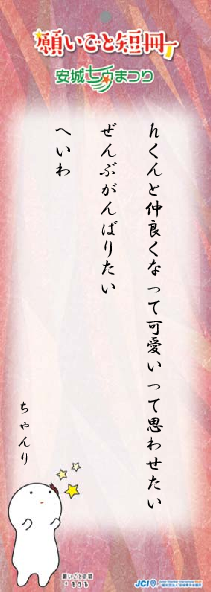 願いごと短冊
安城七夕まつり
hくんと仲良くなって可愛いって思わせたい
ぜんぶがんばりたい
へいわ
ちゃんり
願いごとの国
JCI